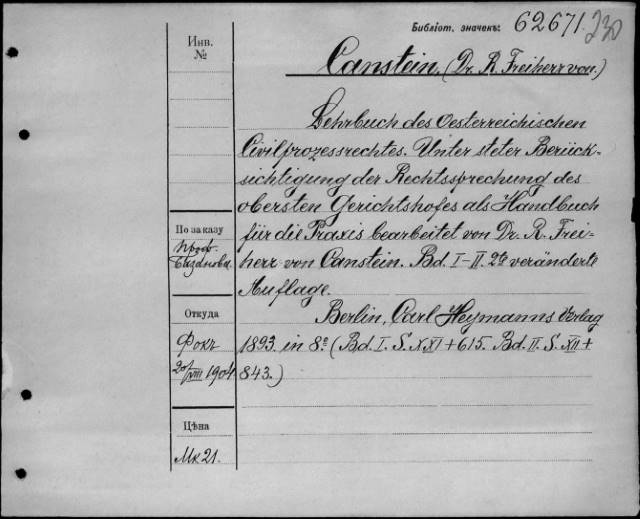 Библіот. значекъ: 62671. 230
Инв.
№
Canstein, (Dr. R. Freiherr von.)
Lehrbuch des Oesterreichischen
Civilprozessrechtes. Unter steter Berück-
sichtigung der Rechtssprechung des
obersten Gerichtshofes als Handbuch
für die Praxis bearbeitet von Dr. R. Frei-
herr von Canstein. Bd. I-II. 2te veränderte
Auflage.
Berlin, Carl Heymanns Verlag
1893. in 8º (Bd. I. S. XXI + 615. Bd. II. S. XII +
843.)
По заказу
проф.
Базанова.
Откуда
Фокъ
20/VIII 1904
Цѣна
Мк 21.